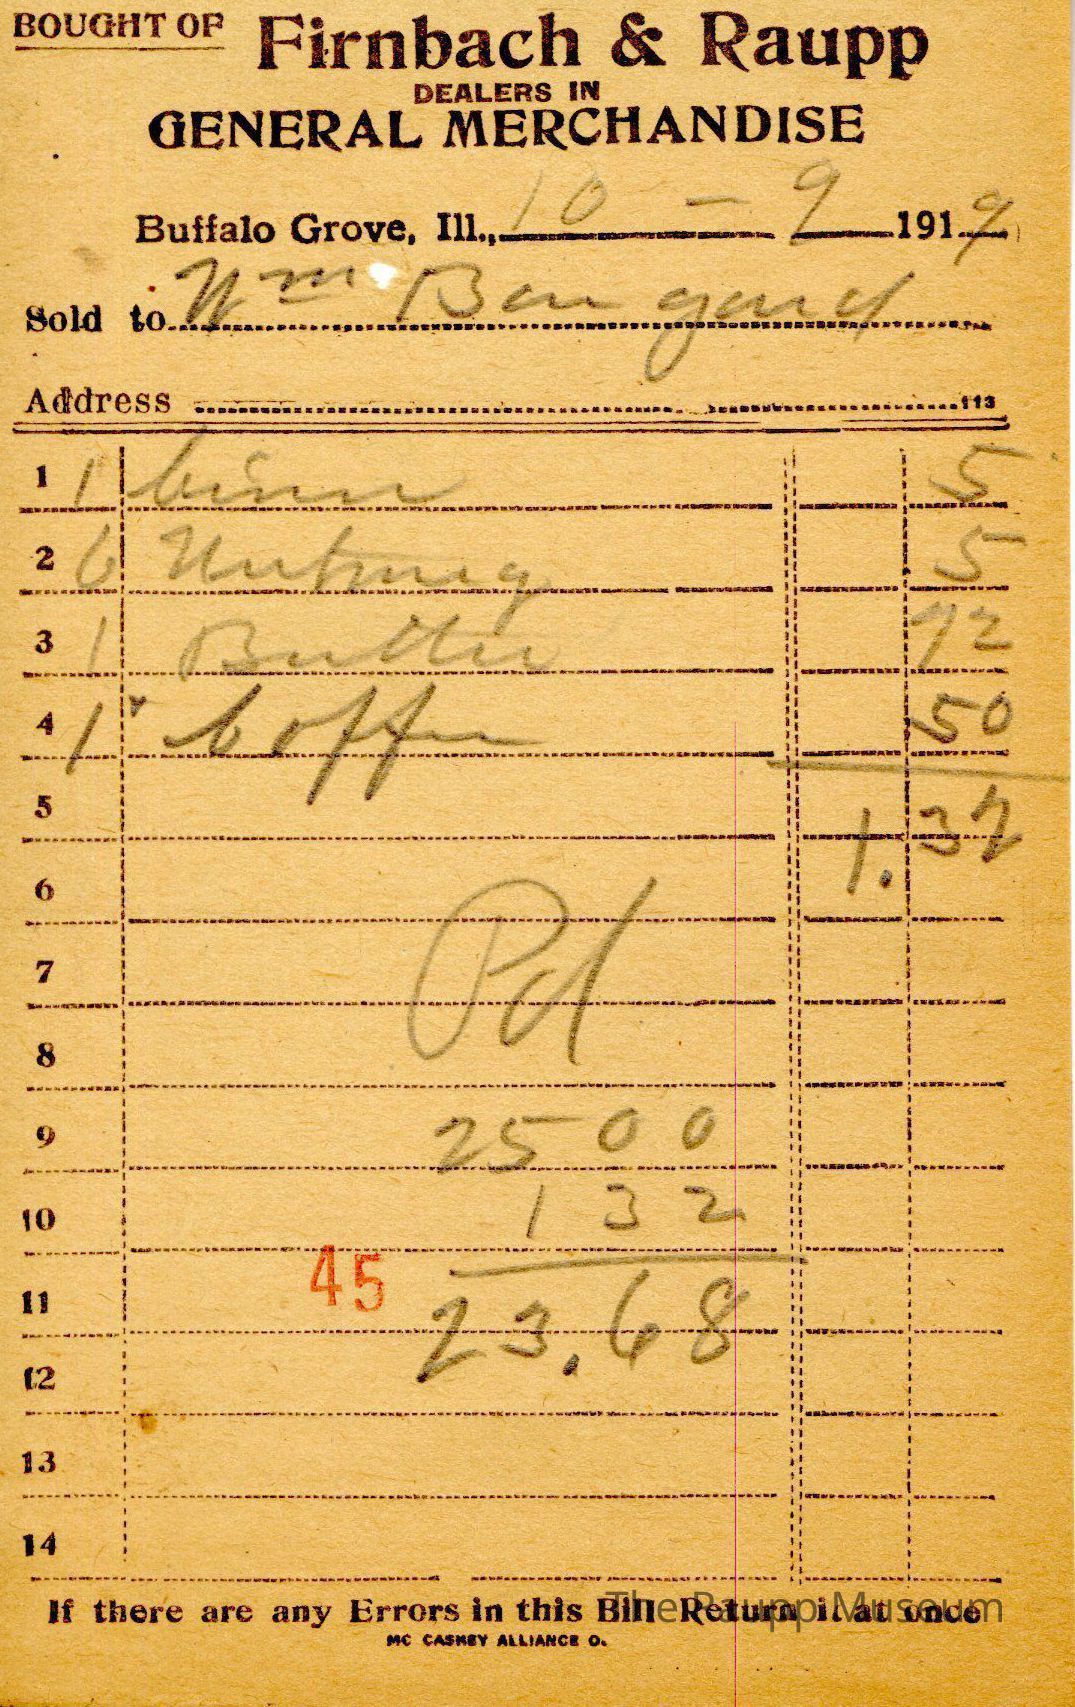 BOUGHT OF Firnbach & Raupp
DEALERS IN
GENERAL MERCHANDISE
Buffalo Grove, Ill., 10 - 9 1919
Sold to Wm Bangard
Address 113
1 1 5
2 6 Nutmeg 5
3 1 Butter 72
4 1 Coffee 50
5 1.32
6
7 Pd
8
9 2500
10 132
45
11 23.68
12
13
14
If there are any Errors in this Bill Return it at once
The Raupp Museum
MC CASKEY ALLIANCE O.